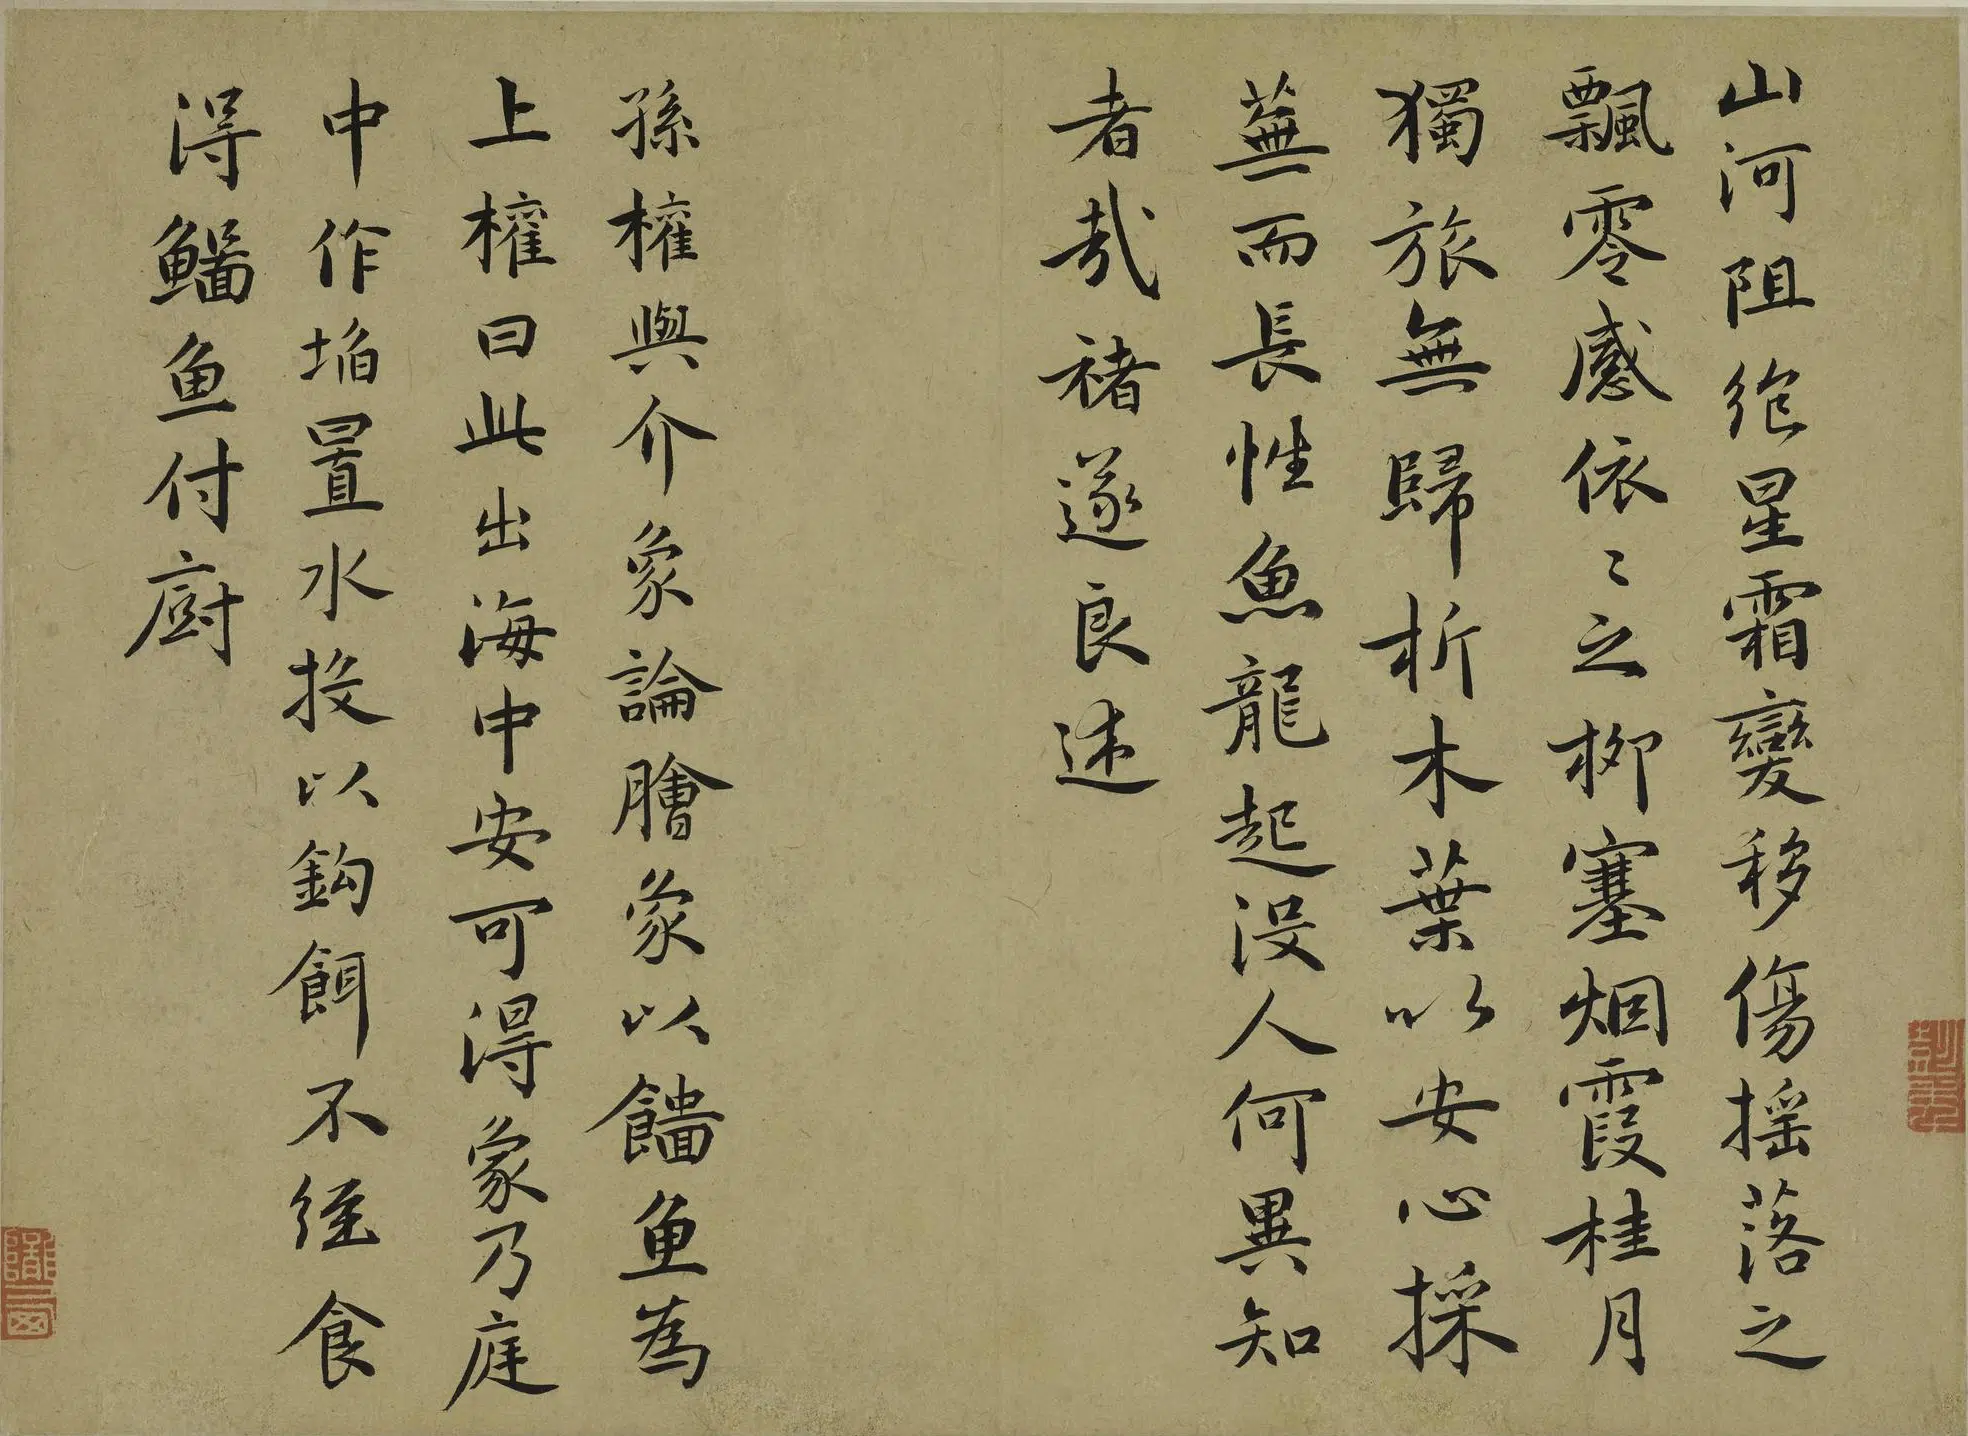 山河阻絶星霜變移傷摇落之
飄零感依〻之柳塞烟霞桂月
獨旅無歸折木葉以安心採
蕪而長性魚龍起没人何異知
者哉褚遂良述
孫權與介象論膾象以鱼為
上權曰此出海中安可得象乃庭
中作埳置水投以鈎餌不經食
得鯔鱼付厨